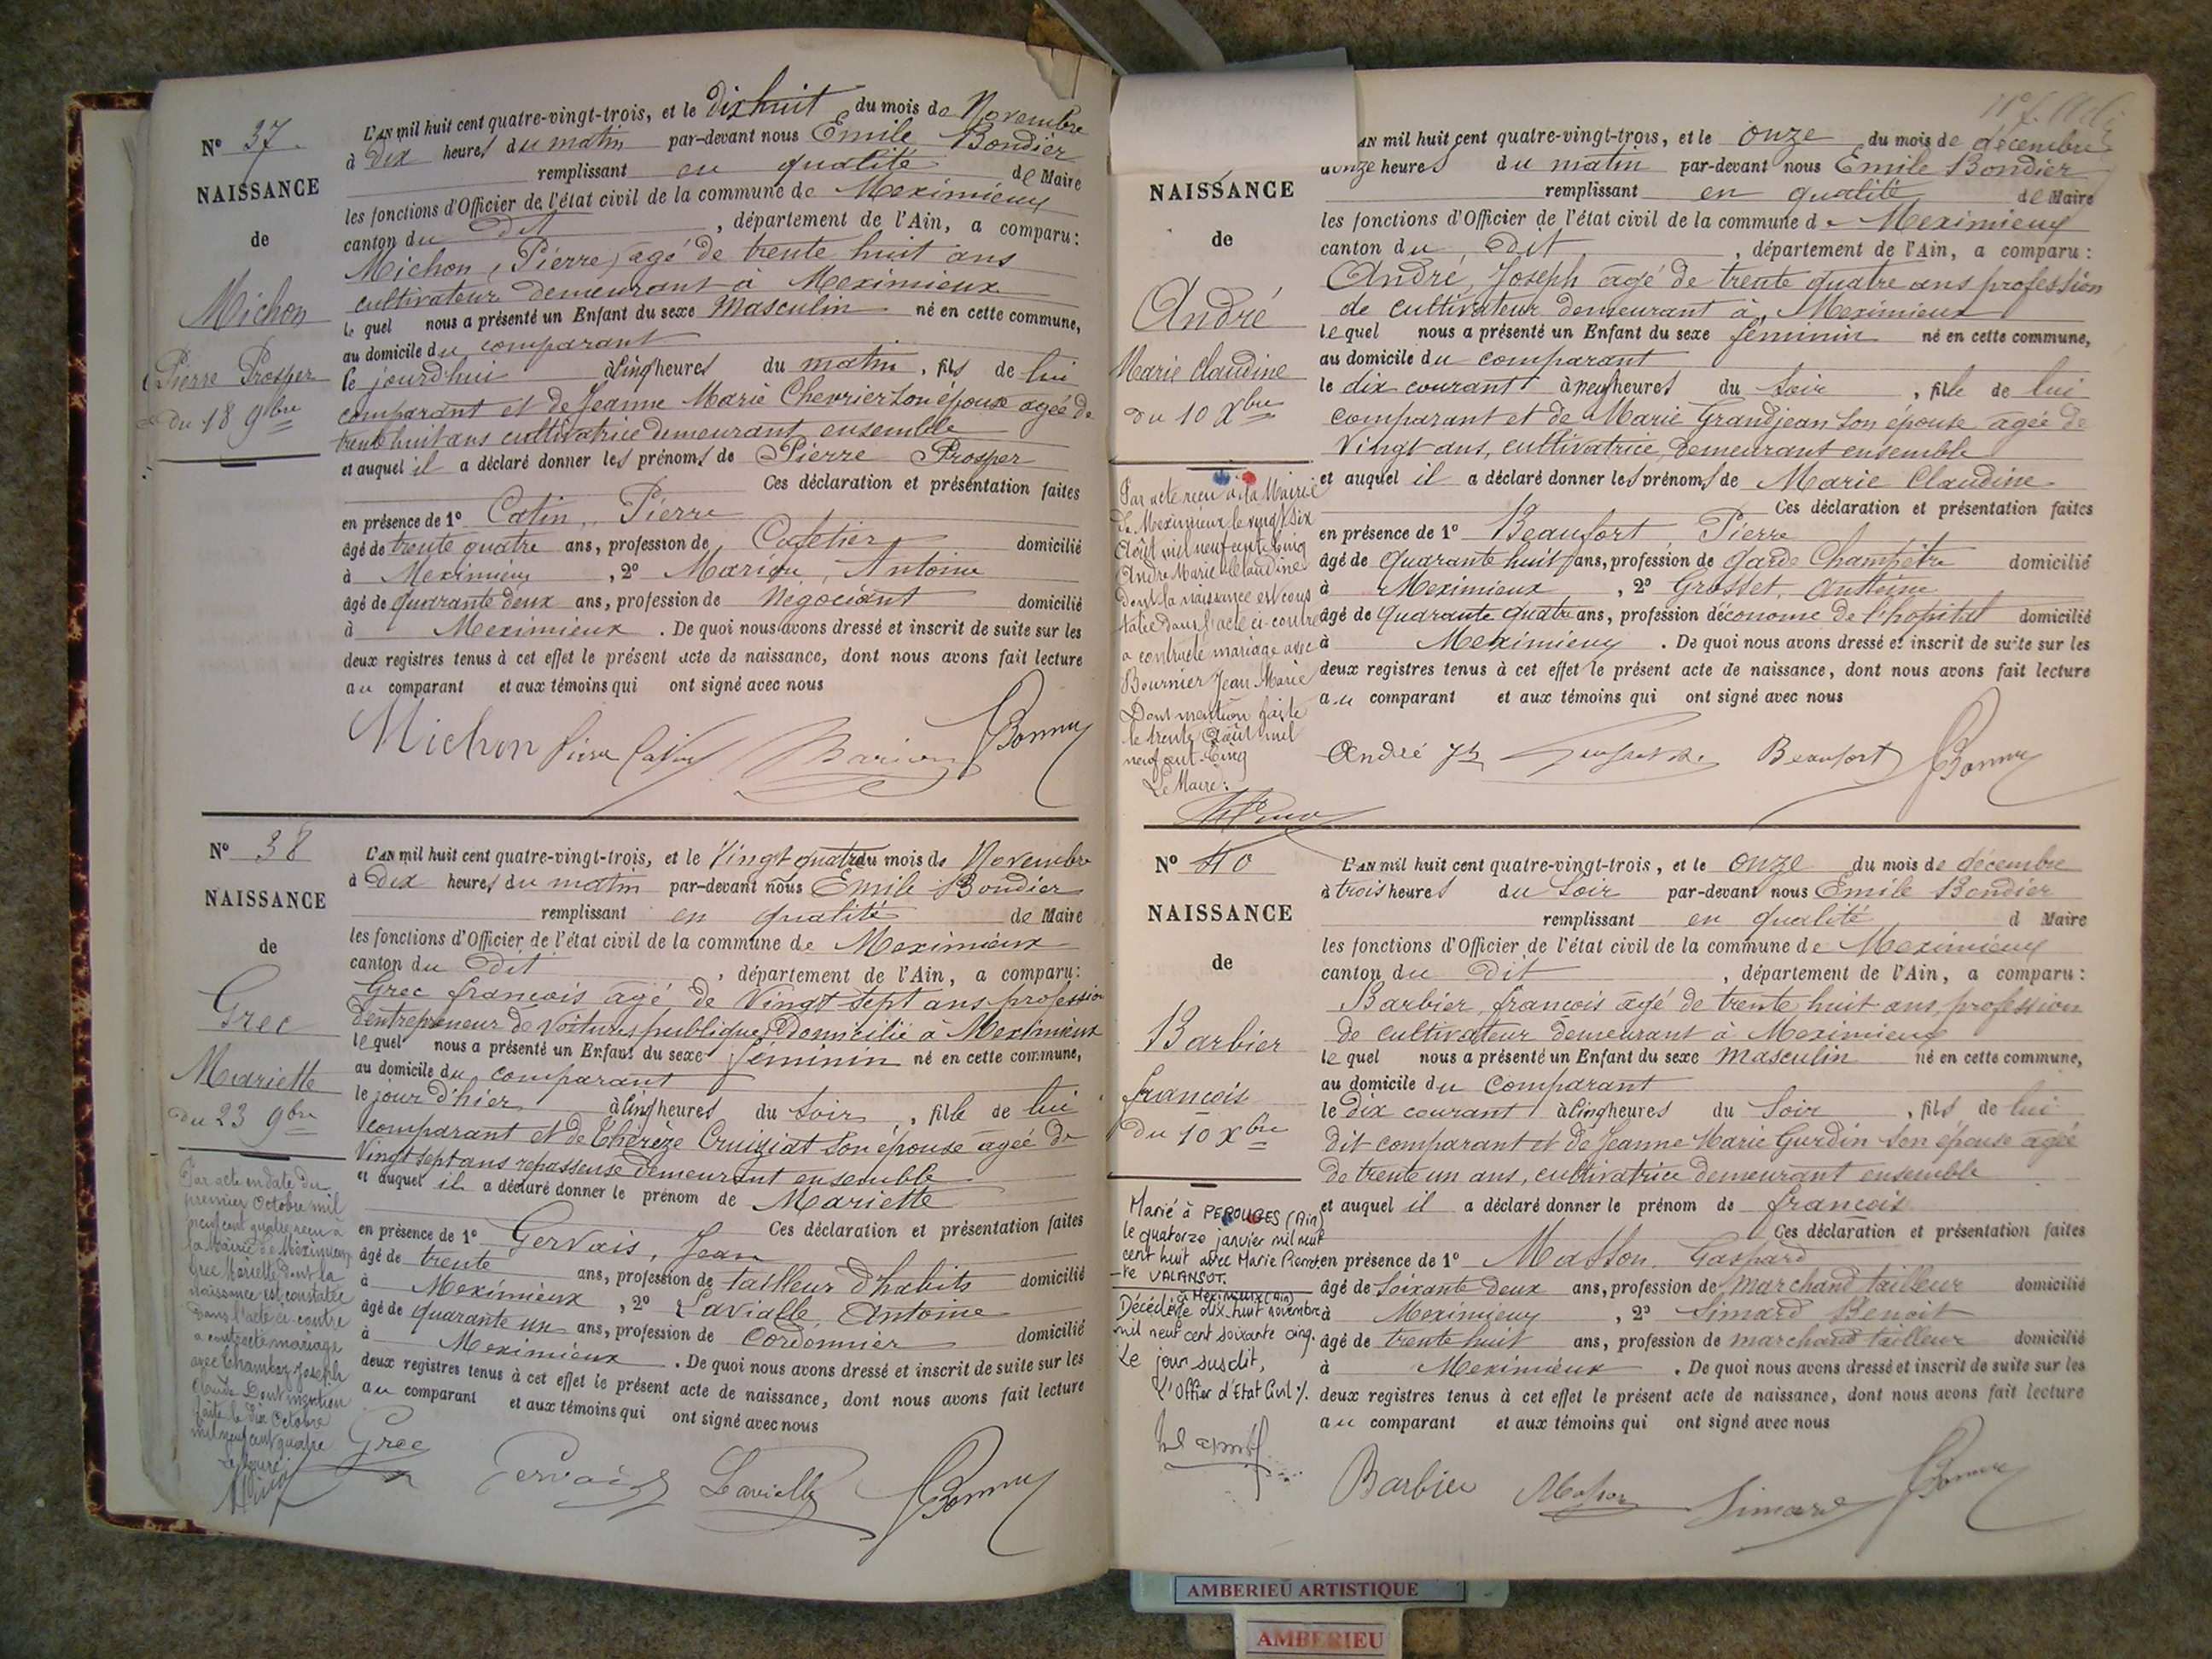 N° 37
NAISSANCE
de
Michon
Pierre Prosper
du 18 9bre
L'AN mil huit cent quatre-vingt-trois, et le dix huit du mois de Novembre
à Dix heures du matin par-devant nous Emile Bondier
remplissant en qualité de Maire
les fonctions d'Officier de l'état civil de la commune de Meximieux
canton du dit, département de l'Ain, a comparu:
Michon, Pierre, agé de trente huit ans
cultivateur demeurant à Meximieux
le quel nous a présenté un Enfant du sexe Masculin né en cette commune,
au domicile du comparant
le jourd'hui à Cinq heures du matin, fils de lui
comparant et de Jeanne Marie Chevrier son épouse agée de
trente huit ans cultivatrice demeurant ensemble
et auquel il a déclaré donner les prénoms de Pierre Prosper
Ces déclaration et présentation faites
en présence de 1° Catin, Pierre
âgé de trente quatre ans, profession de Cafetier domicilié
à Meximieux, 2° Marion, Antoine
âgé de quarante deux ans, profession de Négociant domicilié
à Meximieux. De quoi nous avons dressé et inscrit de suite sur les
deux registres tenus à cet effet le présent acte de naissance, dont nous avons fait lecture
au comparant et aux témoins qui ont signé avec nous
Michon Pierre Catin
N° 38
NAISSANCE
de
Grec
Mariette
du 23 9bre
Par acte en date du
premier Octobre mil
neuf cent quatre reçu à
la Mairie de Meximieux
Grec Mariette dont la
naissance est constatée
dans l'acte ci-contre
a contracté mariage
avec Chambaz Joseph
Claude Dont mention
faite le dix Octobre
mil neuf cent quatre
Le Maire:
L'AN mil huit cent quatre-vingt-trois, et le Vingt quatre du mois de Novembre
à Dix heures du matin par-devant nous Emile Bondier
remplissant en qualité de Maire
les fonctions d'Officier de l'état civil de la commune de Meximieux
canton du dit, département de l'Ain, a comparu:
Grec françois agé de Vingt sept ans profession
d'entrepreneur de voitures publiques Domicilié à Meximieux
le quel nous a présenté un Enfant du sexe féminin né en cette commune,
au domicile du comparant
le jour d'hier à Cinq heures du Soir, fille de lui
comparant et de Thérèze Cruiziat son épouse agée de
Vingt sept ans repasseuse demeurant ensemble
et auquel il a déclaré donner le prénom de Mariette
Ces déclaration et présentation faites
en présence de 1° Gervais, Jean
âgé de trente ans, profession de tailleur d'habits domicilié
à Meximieux, 2° Lavialle, Antoine
âgé de quarante un ans, profession de Cordonnier domicilié
à Meximieux. De quoi nous avons dressé et inscrit de suite sur les
deux registres tenus à cet effet le présent acte de naissance, dont nous avons fait lecture
au comparant et aux témoins qui ont signé avec nous
Grec Gervais Lavialle
NAISSANCE
de
André
Marie Claudine
du 10 Xbre
Par acte reçu à la Mairie
de Meximieux le vingt six
Août mil neuf cent cinq
André Marie Claudine
dont la naissance est cons
tatée dans l'acte ci-contre
a contracté mariage avec
Bournier Jean Marie
Dont mention faite
le trente Août mil
neuf cent cinq
Le Maire:
AN mil huit cent quatre-vingt-trois, et le onze du mois de décembre
à onze heures du matin par-devant nous Emile Bondier
remplissant en qualité de Maire
les fonctions d'Officier de l'état civil de la commune de Meximieux
canton du dit, département de l'Ain, a comparu:
André, Joseph agé de trente quatre ans profession
de cultivateur demeurant à Meximieux
le quel nous a présenté un Enfant du sexe féminin né en cette commune,
au domicile du comparant
le dix courant à neuf heures du Soir, fille de lui
comparant et de Marie Grandjean son épouse agée de
Vingt ans, cultivatrice, demeurant ensemble
et auquel il a déclaré donner les prénoms de Marie Claudine
Ces déclaration et présentation faites
en présence de 1° Beaufort Pierre
âgé de quarante huit ans, profession de garde Champêtre domicilié
à Meximieux, 2° Grosset, Anthime
âgé de quarante quatre ans, profession d'économe de l'hopital domicilié
à Meximieux. De quoi nous avons dressé et inscrit de suite sur les
deux registres tenus à cet effet le présent acte de naissance, dont nous avons fait lecture
au comparant et aux témoins qui ont signé avec nous
André Beaufort
N° 40
NAISSANCE
de
Barbier
françois
du 10 Xbre
Marié à PEROUGES (Ain)
le quatorze janvier mil neuf
cent huit avec Marie Pierret
-te VALANSOT.
à MEXIMIEUX (Ain)
Décédé le dix huit novembre
mil neuf cent soixante cinq.
Le jour susdit,
L'Officier d'Etat Civil %.
L'AN mil huit cent quatre-vingt-trois, et le onze du mois de décembre
à trois heures du Soir par-devant nous Emile Bondier
remplissant en qualité d Maire
les fonctions d'Officier de l'état civil de la commune de Meximieux
canton du dit, département de l'Ain, a comparu:
Barbier, françois agé de trente huit ans, profession
de cultivateur demeurant à Meximieux
le quel nous a présenté un Enfant du sexe masculin né en cette commune,
au domicile du Comparant
le dix courant à Cinq heures du Soir, fils de lui
dit comparant et de Jeanne Marie Gurdin son épouse agée
de trente un ans, cultivatrice demeurant ensemble
et auquel il a déclaré donner le prénom de françois
Ces déclaration et présentation faites
en présence de 1° Masson, Gaspard
âgé de Soixante deux ans, profession de marchand tailleur domicilié
à Meximieux, 2° Simard Benoit
âgé de trente huit ans, profession de marchand tailleur domicilié
à Meximieux. De quoi nous avons dressé et inscrit de suite sur les
deux registres tenus à cet effet le présent acte de naissance, dont nous avons fait lecture
au comparant et aux témoins qui ont signé avec nous
Barbier Masson Simard
AMBERIEU ARTISTIQUE
AMBERIEU